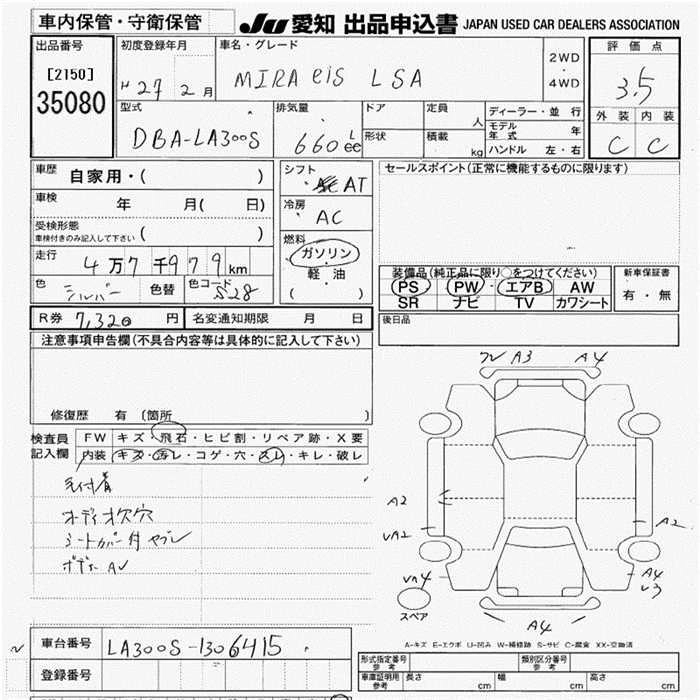 車内保管・守衛保管
JU 愛知 出品申込書 JAPAN USED CAR DEALERS ASSOCIATION
出品番号
[2150]
35080
初度登録年月
H 27 2 月
車名・グレード
MIRA eis LSA
2WD
・
4WD
評価点
3.5
外装 内装
C C
型式
DBA-LA300S
排気量
660 L cc
ドア
形状
定員 人
積載 kg
ディーラー・並行
モデル年式 年
ハンドル 左・右
車歴 自家用・( )
車検 年 月( 日)
受検形態
車検付きのみ記入して下さい ( )
走行 4万7千979km
色 シルバー 色替 色コード S28
シフト AT
冷房 AC
燃料
ガソリン・
軽・油
( )
セールスポイント(正常に機能するものに限ります)
装備品(純正品に限り○をつけてください)
PS PW エアB AW
SR ナビ TV カワシート
新車保証書
有・無
後日品
R券 7,320 円 名変通知期限 月 日
注意事項申告欄(不具合内容等は具体的に記入して下さい)
修復歴 有 (箇所 )
検査員
記入欄
FW キズ・飛石・ヒビ割・リペア跡・X要
内装 キズ・汚レ・コゲ・穴・スレ・キレ・破レ
毛付着
オーディオ欠穴
シートカバー付ヤブレ
ボデー AU
A3 A4
A2
UA2
A2
A4
U3
A4
スペア
A-キズ E-エクボ U-凹み W-補修跡 S-サビ C-腐食 XX-交換済
車台番号 LA300S-1306415
登録番号
形式指定番号
参考
類別区分番号
参考
車庫証明用
参考
長さ cm 幅 cm 高さ cm